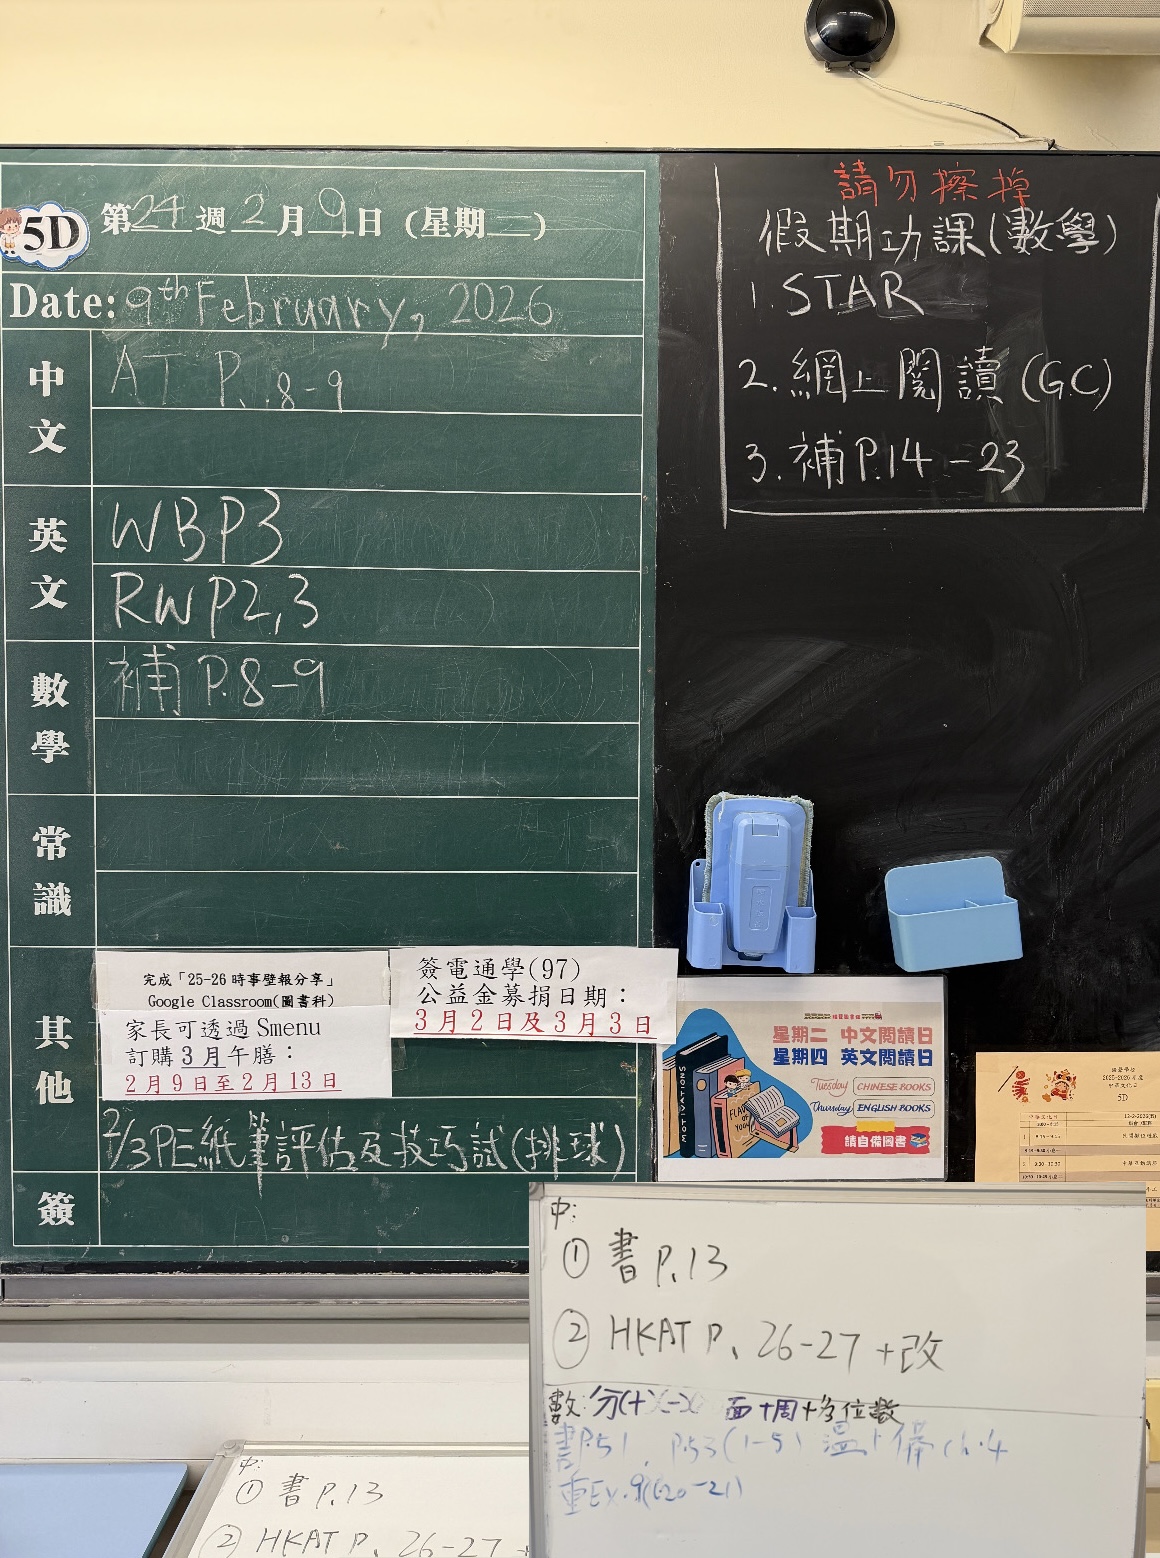 5D
第24週2月9日(星期二)
Date: 9th February, 2026
中文
AT P.8-9
英文
WBP3
RWP2,3
數學
補P.8-9
常識
其他
完成「25-26時事壁報分享」
Google Classroom(圖書科)
家長可透過Smenu
訂購3月午膳：
2月9日至2月13日
簽電通學(97)
公益金募捐日期：
3月2日及3月3日
2/3PE紙筆評估及技巧試(排球)
簽
請勿擦掉
假期功課(數學)
1.STAR
2.網上閱讀(GC)
3.補P.14-23
星期二 中文閱讀日
星期四 英文閱讀日
Tuesday CHINESE BOOKS
Thursday ENGLISH BOOKS
請自備圖書
2025-2026年度
5D
中:
①書P.13
②HKAT P. 26-27+改
數:分(+)(-)(
面+周+多位數
書P.51, P.53(1-5) 溫+備ch.4
重Ex.9(20-21)
中:
①書P.13
②HKAT P. 26-27